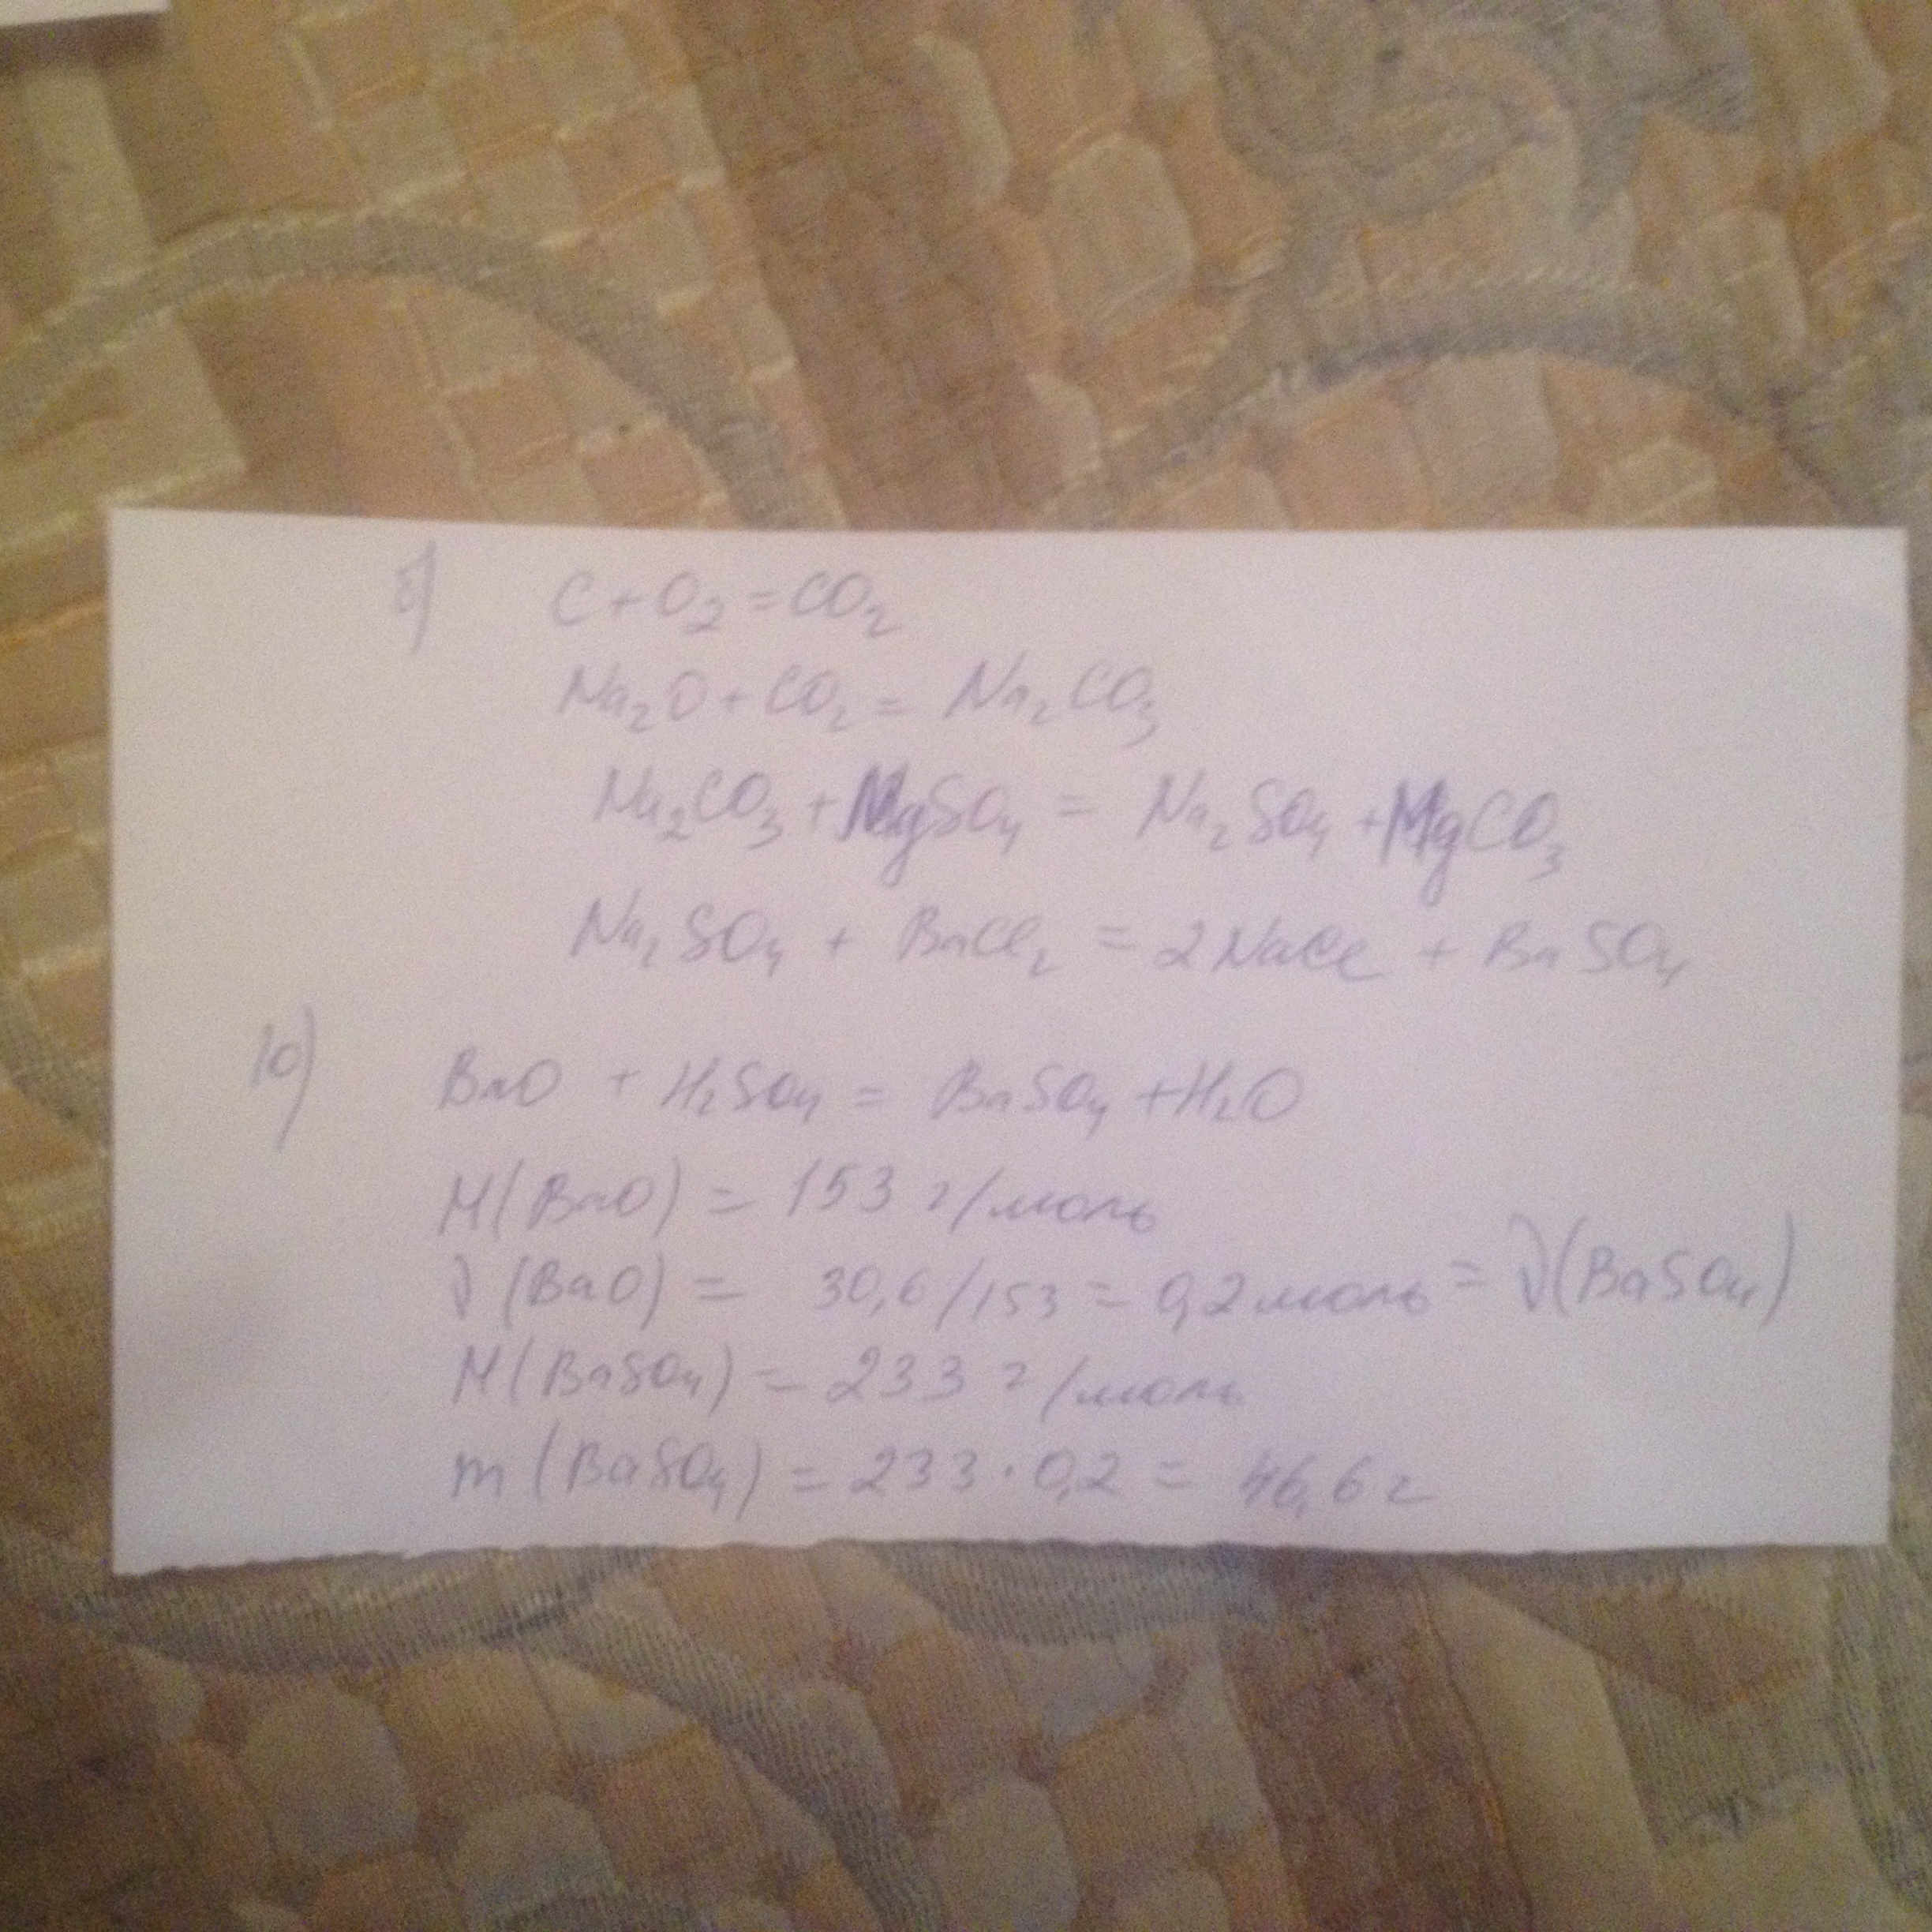 8) C + O₂ = CO₂
Na₂O + CO₂ = Na₂CO₃
Na₂CO₃ + MgSO₄ = Na₂SO₄ + MgCO₃
Na₂SO₄ + BaCl₂ = 2NaCl + BaSO₄
10) BaO + H₂SO₄ = BaSO₄ + H₂O
M(BaO) = 153 г/моль
ν(BaO) = 30,6/153 = 0,2 моль = ν(BaSO₄)
M(BaSO₄) = 233 г/моль
m(BaSO₄) = 233 · 0,2 = 46,6 г